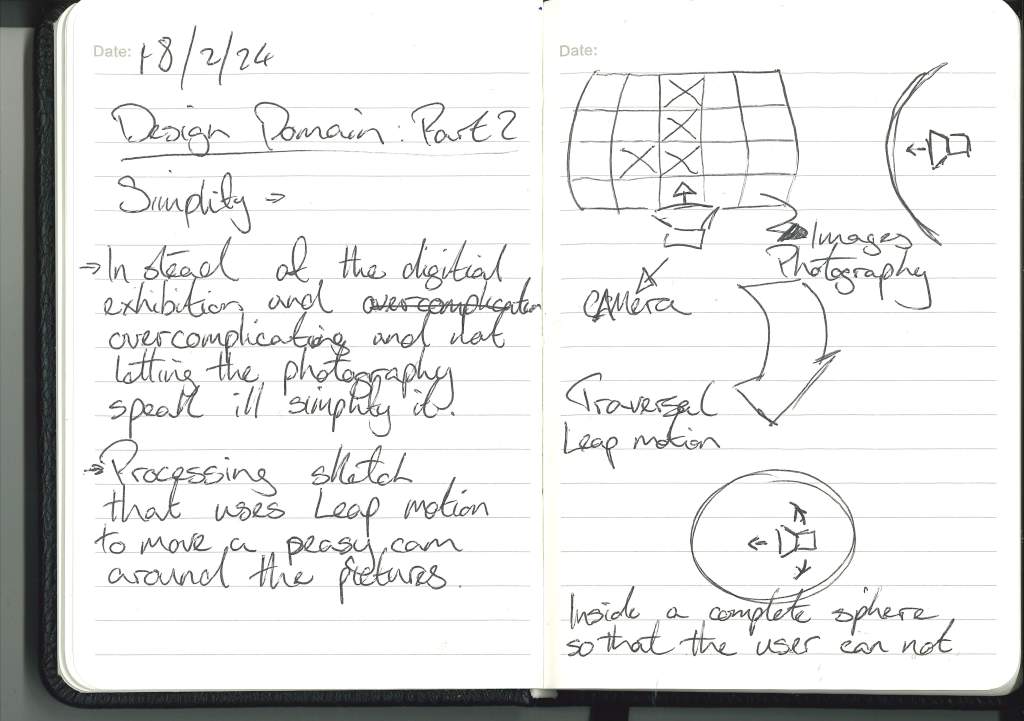 Date: 18/2/24
Design Domain: Part 2
Simplify →
→ In stead of the digitial
exhibition and overcomplication
overcomplicating and not
letting the photography
speak ill simplify it.
→ Processing sketch
that uses Leap motion
to move a peasy cam
around the pictures.
Date:
Images
Photography
CAMera
Traversal
Leap motion
Inside a complete sphere
so that the user can not